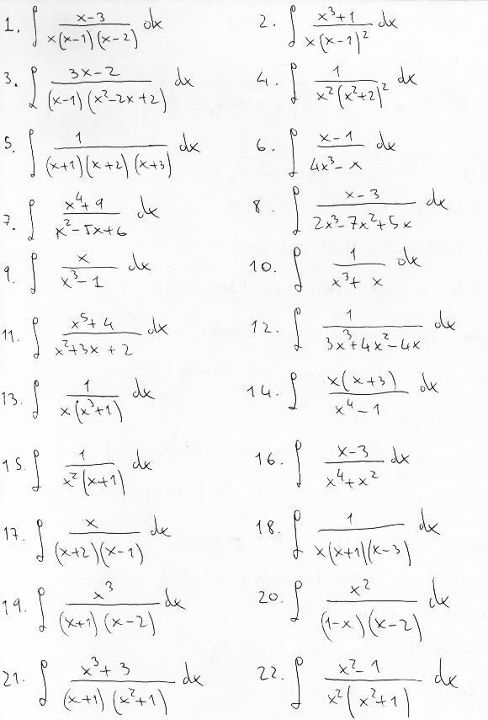 1. ∫ (x-3)/(x(x-1)(x-2)) dx
2. ∫ (x³+1)/(x(x-1)²) dx
3. ∫ (3x-2)/((x-1)(x²-2x+2)) dx
4. ∫ 1/(x²(x²+2)²) dx
5. ∫ 1/((x+1)(x+2)(x+3)) dx
6. ∫ (x-1)/(4x³-x) dx
7. ∫ (x⁴+9)/(x²-5x+6) dx
8. ∫ (x-3)/(2x³-7x²+5x) dx
9. ∫ x/(x³-1) dx
10. ∫ 1/(x³+x) dx
11. ∫ (x⁵+4)/(x²+3x+2) dx
12. ∫ 1/(3x³+4x²-4x) dx
13. ∫ 1/(x(x³+1)) dx
14. ∫ (x(x+3))/(x⁴-1) dx
15. ∫ 1/(x²(x+1)) dx
16. ∫ (x-3)/(x⁴+x²) dx
17. ∫ x/((x+2)(x-1)) dx
18. ∫ 1/(x(x+1)(x-3)) dx
19. ∫ x³/((x+1)(x-2)) dx
20. ∫ x²/((1-x)(x-2)) dx
21. ∫ (x³+3)/((x+1)(x²+1)) dx
22. ∫ (x²-1)/(x²(x²+1)) dx